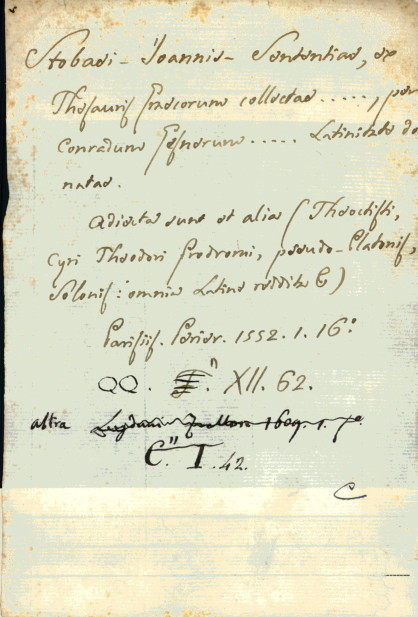 Stobaei - Joannis - Sententiae, ex
Thesauris Graecorum collectae ....., per
Conradum Gesnerum ..... Latinitate do
natae.
Adiecta sunt et alia (Theoctisti,
Cyri Theodori Prodromi, pseudo-Platonis,
Solonis: omnia Latine reddita)
Parisiis. Perier. 1552. 1. 16.º
QQ. XII. 62.
altra Lugduni 1609. 1.
C." I. 42.
C